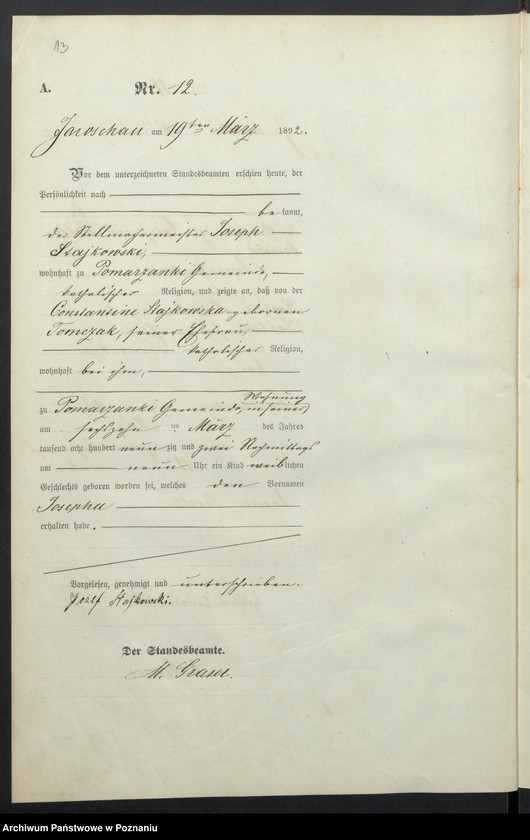 13
A.
Nr. 12.
Jaroschau am 19ten März 1892.
Vor dem unterzeichneten Standesbeamten erschien heute, der
Persönlichkeit nach
bekannt,
der Stellmachermeister Joseph
Stajkowski,
wohnhaft zu Pomarzanki Gemeinde,
katholischer Religion, und zeigte an, daß von der
Constansene Stajkowska gebornen
Tomczak, seiner Ehefrau,
katholischer Religion,
wohnhaft bei ihm,
zu Pomarzanki Gemeinde, in seiner Wohnung
am sechszehn ten März des Jahres
tausend acht hundert neunzig und zwei Nachmittags
um neun Uhr ein Kind weiblichen
Geschlechts geboren worden sei, welches den Vornamen
Josepha
erhalten habe.
Vorgelesen, genehmigt und unterschrieben.
Jozef Stajkowski.
Der Standesbeamte.
M. Graser.
Archiwum Państwowe w Poznaniu